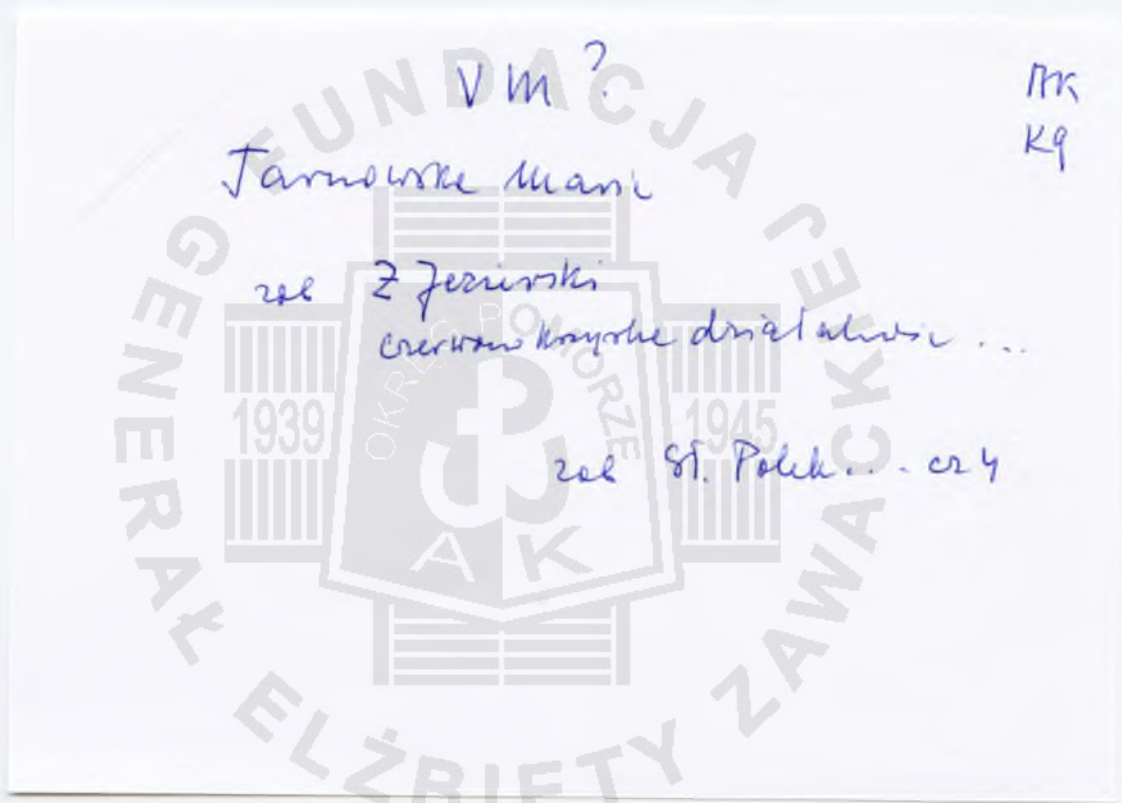 VM?
AK
KG
Tarnowska Maria
zob Z Jezierski
czerwonokrzyska działalność ...
zob St. Polek... cz 4
FUNDACJA JEJ
GENERAŁ ELŻBIETY ZAWACKIEJ
OKRĘG POMORZE
1939
1945
AK